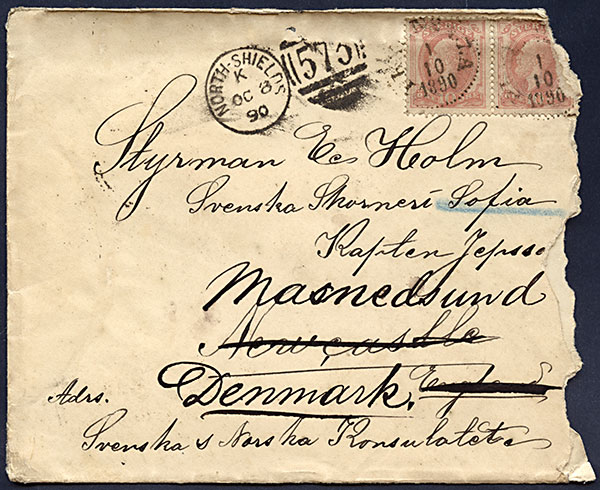 NORTH-SHIELDS
K
OC 8
90
575
1
10
1890
1
10
1890
Styrman E. Holm
Svenska Skonert Sofia
Kapten Jepsso
Masnedsund
Newcastle
Denmark. England
Adrs.
Svenska & Norska Konsulatet